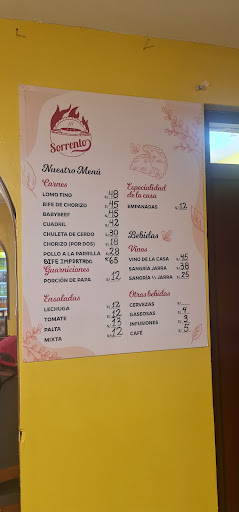 Sorrento
Nuestro Menú
Carnes
LOMO FINO S/. 48
BIFE DE CHORIZO S/. 45
BABYBEEF S/. 45
CUADRIL S/. 42
CHULETA DE CERDO S/. 30
CHORIZO (POR DOS) S/. 18
POLLO A LA PARRILLA S/. 28
BIFE IMPORTADO 65
Guarniciones
PORCIÓN DE PAPA S/. 12
Ensaladas
LECHUGA S/. 12
TOMATE S/. 12
PALTA S/. 13
MIXTA S/. 12
Especialidad
de la casa
EMPANADAS S/. 12
Bebidas
Vinos
VINO DE LA CASA S/. 45
SANGRÍA JARRA S/. 38
SANGRÍA ½ JARRA S/. 25
Otras bebidas
CERVEZAS S/.
GASEOSAS S/. 4
INFUSIONES S/. 3
CAFÉ S/. 5